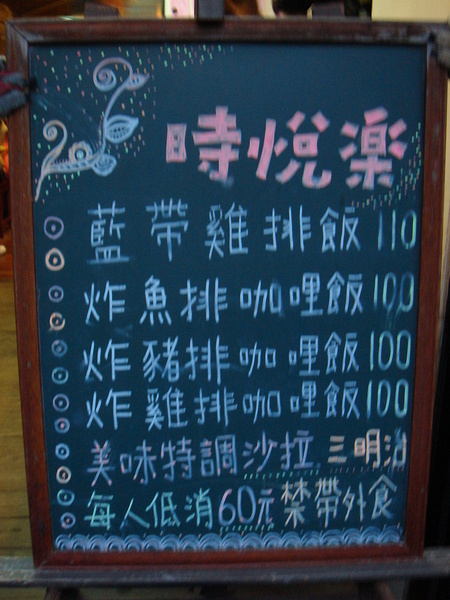 時悅楽
藍帶雞排飯110
炸魚排咖哩飯100
炸豬排咖哩飯100
炸雞排咖哩飯100
美味特調沙拉三明治
每人低消60元禁帶外食